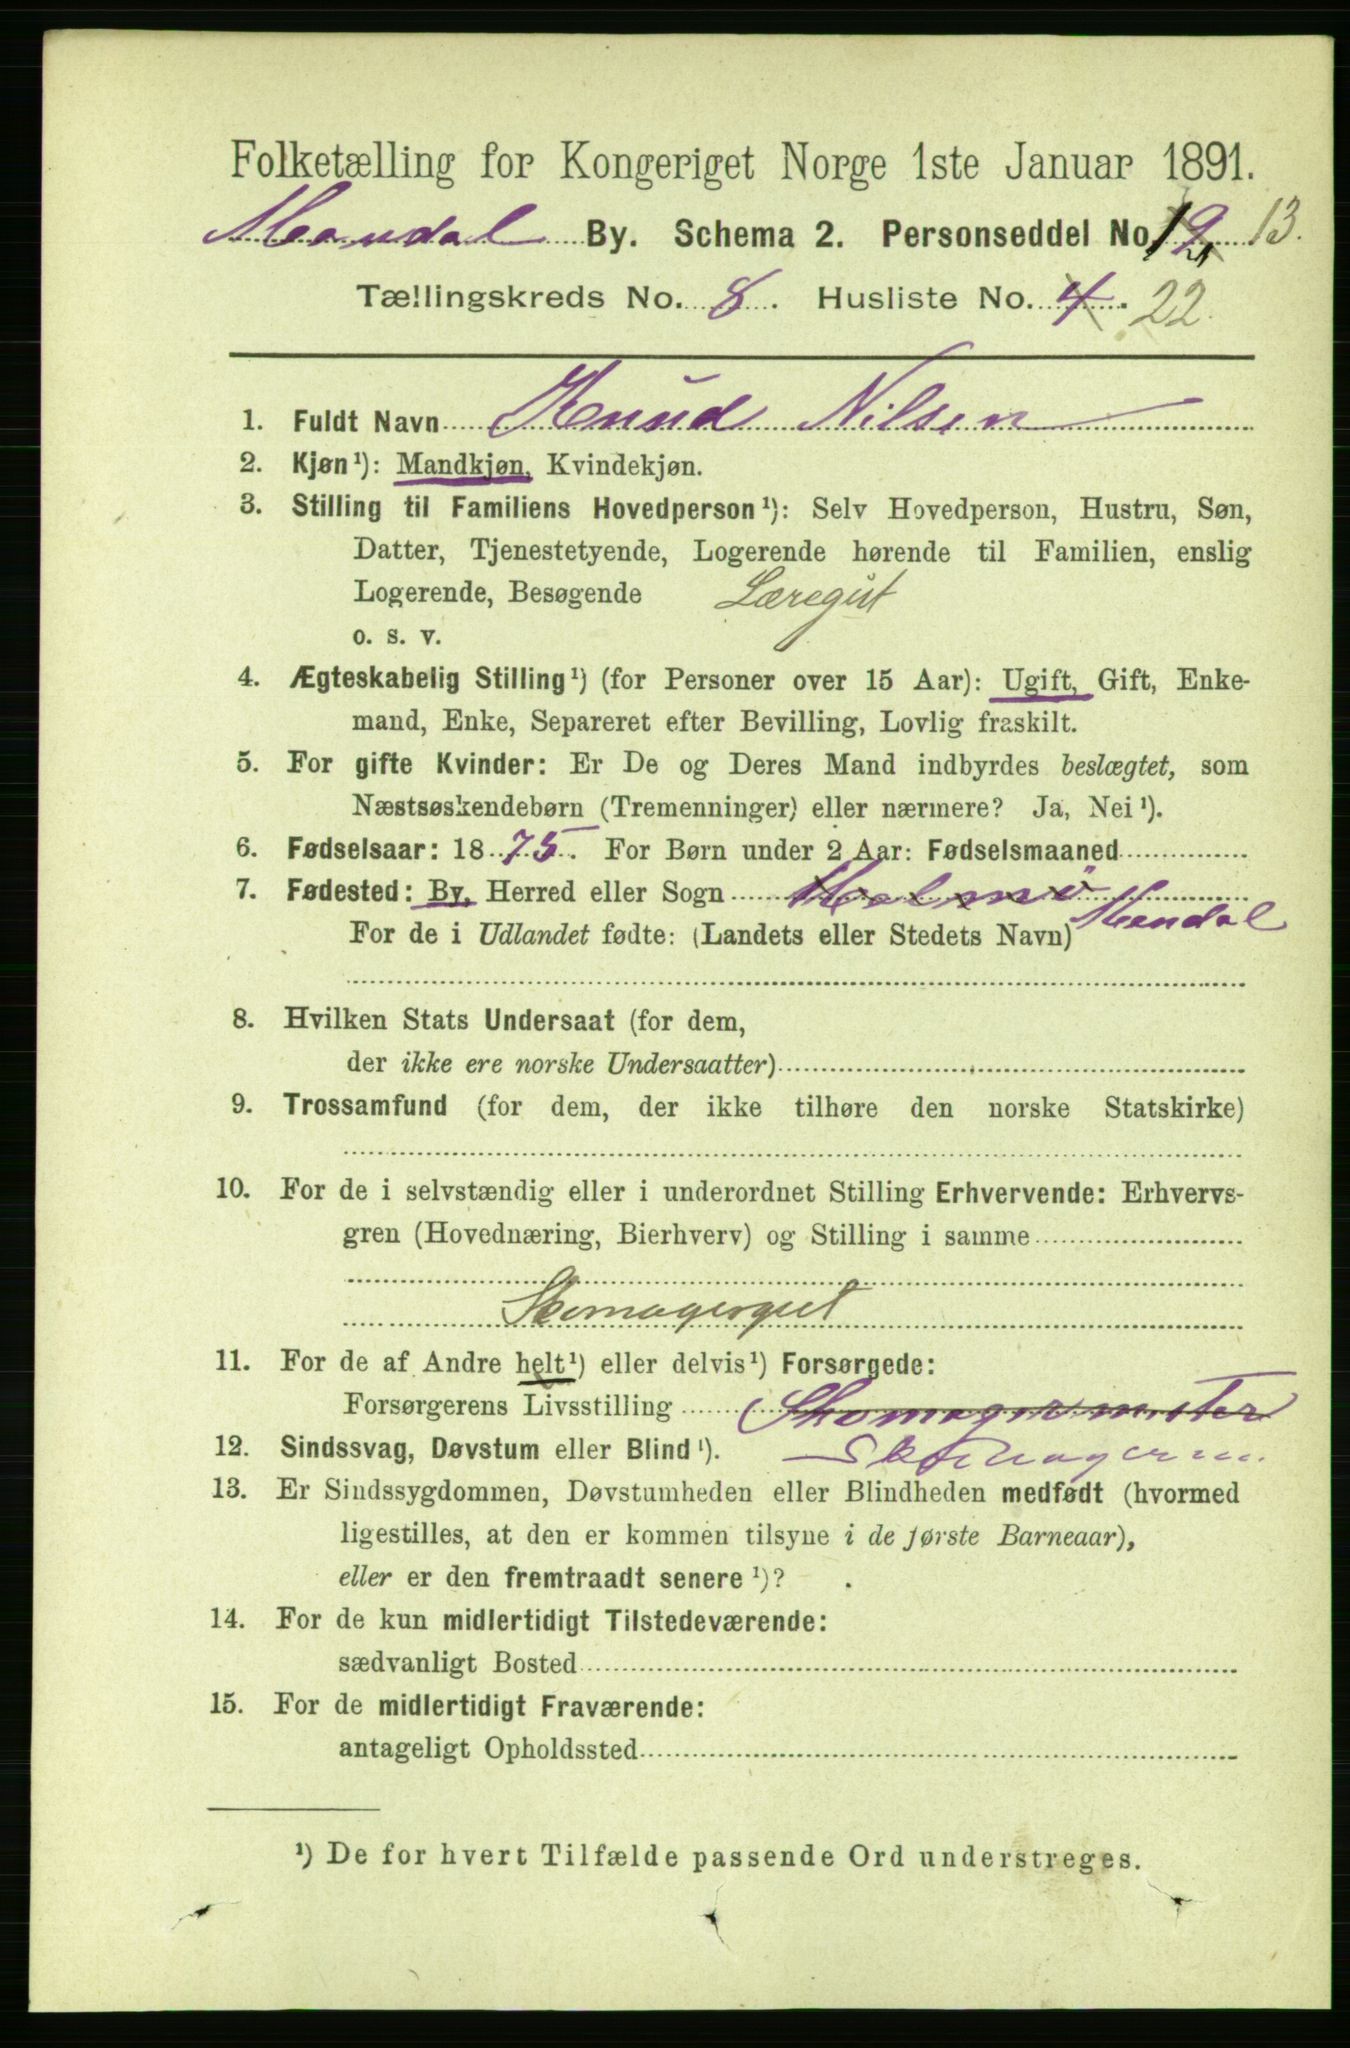 Folketælling for Kongeriget Norge 1ste Januar 1891.
Mandal By. Schema 2. Personseddel No 13.
Tællingskreds No. 8. Husliste No. 4. 22.
1. Fuldt Navn Knud Nilsen
2. Kjøn¹): Mandkjøn, Kvindekjøn.
3. Stilling til Familiens Hovedperson¹): Selv Hovedperson, Hustru, Søn,
Datter, Tjenestetyende, Logerende hørende til Familien, enslig
Logerende, Besøgende Læregut
o. s. v.
4. Ægteskabelig Stilling¹) (for Personer over 15 Aar): Ugift, Gift, Enke-
mand, Enke, Separeret efter Bevilling, Lovlig fraskilt.
5. For gifte Kvinder: Er De og Deres Mand indbyrdes beslægtet, som
Næstsøskendebørn (Tremenninger) eller nærmere? Ja, Nei¹).
6. Fødselsaar: 1875. For Børn under 2 Aar: Fødselsmaaned
7. Fødested: By, Herred eller Sogn Malmø
For de i Udlandet fødte: (Landets eller Stedets Navn) Mandal
8. Hvilken Stats Undersaat (for dem,
der ikke ere norske Undersaatter)
9. Trossamfund (for dem, der ikke tilhøre den norske Statskirke)
10. For de i selvstændig eller i underordnet Stilling Erhvervende: Erhvervs-
gren (Hovednæring, Bierhverv) og Stilling i samme
Skomagergut
11. For de af Andre helt¹) eller delvis¹) Forsørgede:
Forsørgerens Livsstilling Skomagermester
12. Sindssvag, Døvstum eller Blind¹). Skomagerm.
13. Er Sindssygdommen, Døvstumheden eller Blindheden medfødt (hvormed
ligestilles, at den er kommen tilsyne i de første Barneaar),
eller er den fremtraadt senere¹)?
14. For de kun midlertidigt Tilstedeværende:
sædvanligt Bosted
15. For de midlertidigt Fraværende:
antageligt Opholdssted
¹) De for hvert Tilfælde passende Ord understreges.